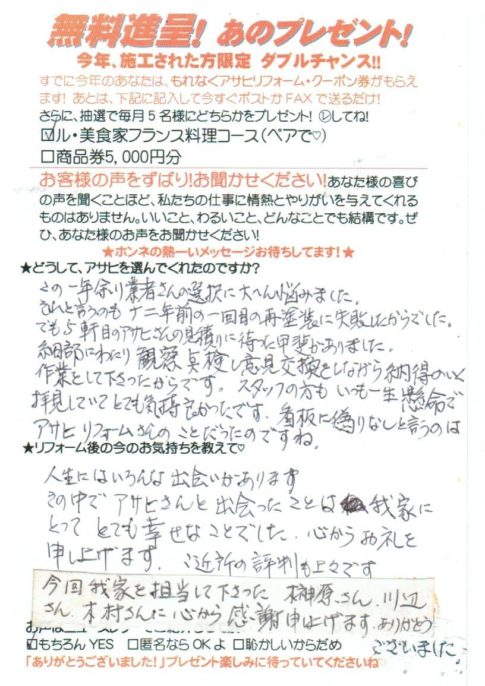 無料進呈! あのプレゼント!
今年、施工された方限定 ダブルチャンス!!
すでに今年のあなたは、もれなくアサヒリフォーム・クーポン券がもらえ
ます! あとは、下記に記入して今すぐポストかFAXで送るだけ!
さらに、抽選で毎月5名様にどちらかをプレゼント! ☑してね!
☑ル・美食家フランス料理コース(ペアで♡)
□商品券5,000円分
お客様の声をずばり!お聞かせください!あなた様の喜び
の声を聞くことほど、私たちの仕事に情熱とやりがいを与えてくれる
ものはありません。いいこと、わるいこと、どんなことでも結構です。ぜ
ひ、あなた様のお声をお聞かせください!
★ホンネの熱ーいメッセージお待ちしてます!★
★どうして、アサヒを選んでくれたのですか?
この一年余り業者さんの選択に大へん悩みました。
それと言うのも十二年前の一回目の再塗装に失敗したからでした。
でも5軒目のアサヒさんの見積りに待った甲斐がありました。
細部にわたり観察点検し意見交換をしながら納得のいく
作業として下さったからです。スタッフの方もいつも一生懸命で
拝見していてとても気持良かったです。看板に偽りなしと言うのは
アサヒリフォームさんのことだったのですね。
★リフォーム後の今のお気持ちを教えて♡
人生にはいろんな出会いがあります
その中でアサヒさんと出会ったことは我家に
とってとても幸せなことでした。心からお礼を
申し上げます。ご近所の評判も上々です
今回我家を担当して下さった榊原さん、川辺
さん、木村さんに心から感謝申上げます。ありがとう
ございました
□もちろんYES □匿名ならOKよ □恥かしいからだめ
「ありがとうございました!」プレゼント楽しみに待っていてくださいね